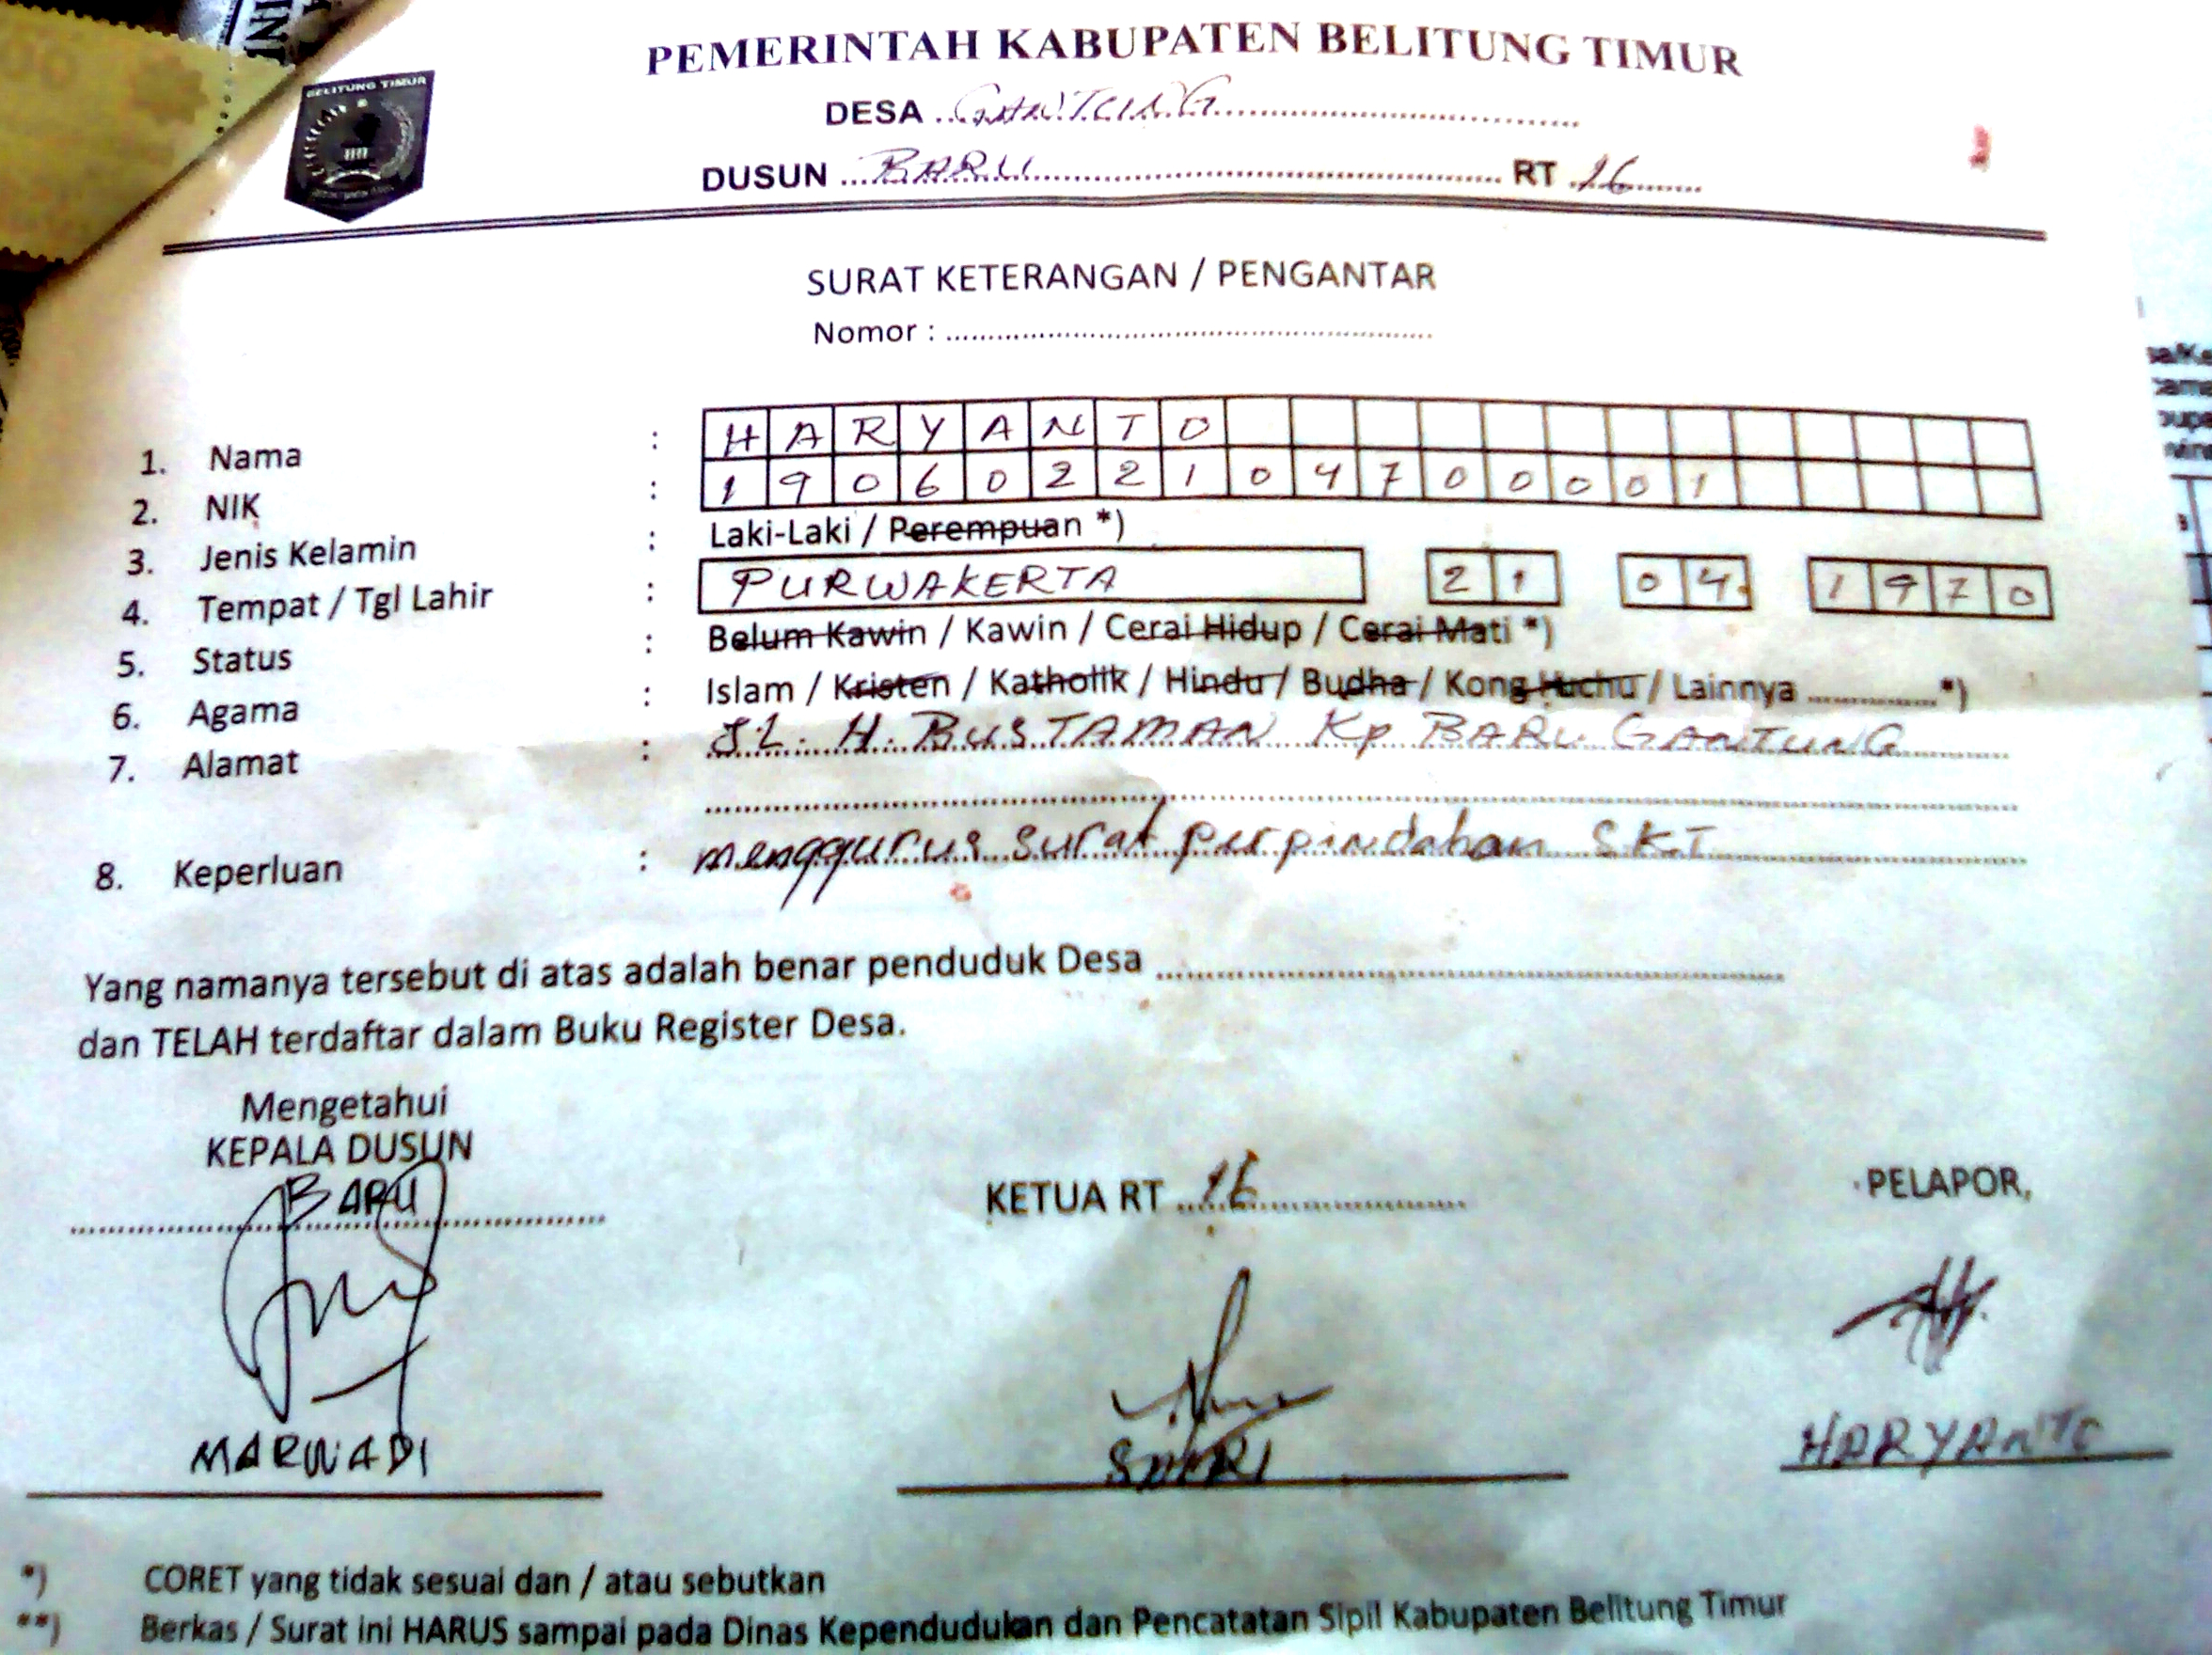 BELITUNG TIMUR
PEMERINTAH KABUPATEN BELITUNG TIMUR
DESA ..GANTUNG..............................
DUSUN ....BARU.............................. RT .16........
SURAT KETERANGAN / PENGANTAR
Nomor : ..............................
1. Nama : HARYANTO
2. NIK : 1906022104700001
3. Jenis Kelamin : Laki-Laki / Perempuan *)
4. Tempat / Tgl Lahir : PURWAKERTA 21 04 1970
5. Status : Belum Kawin / Kawin / Cerai Hidup / Cerai Mati *)
6. Agama : Islam / Kristen / Katholik / Hindu / Budha / Kong Huchu / Lainnya ..............*)
7. Alamat : JL. H. BUSTAMAN Kp BARU GANTUNG
8. Keperluan : menggurus surat perpindahan SKT
Yang namanya tersebut di atas adalah benar penduduk Desa ..............................
dan TELAH terdaftar dalam Buku Register Desa.
Mengetahui
KEPALA DUSUN
BARU
KETUA RT ...16..............
PELAPOR,
MARWADI
HARYANTO
*) CORET yang tidak sesuai dan / atau sebutkan
**) Berkas / Surat ini HARUS sampai pada Dinas Kependudukan dan Pencatatan Sipil Kabupaten Belitung Timur